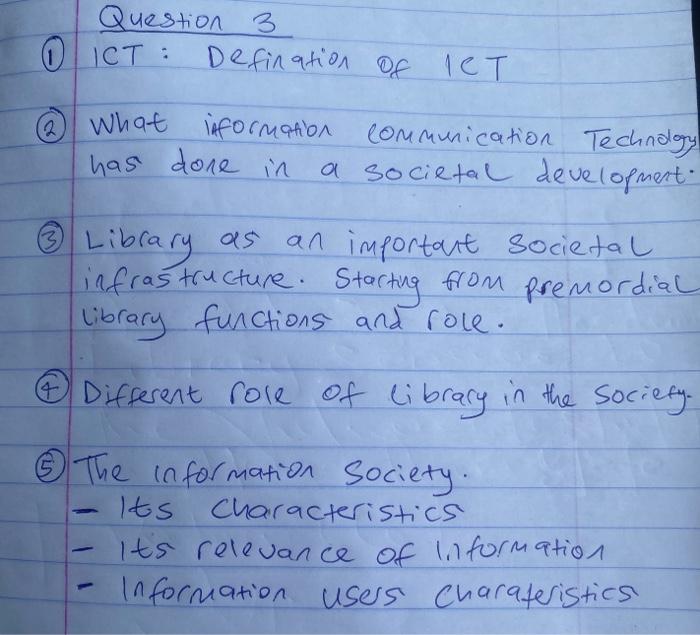 Question 3
① ICT : Defination of ICT
② What information communication Technology
has done in a societal development.
③ Library as an important societal
infrastructure. Starting from premordial
library functions and role.
④ Different role of library in the society.
⑤ The information society.
- Its characteristics
- It's relevance of information
- Information users charateristics